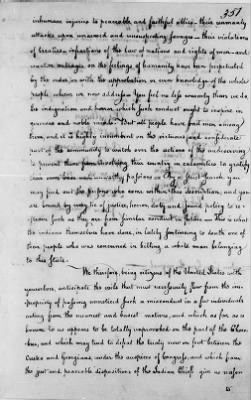 351
inhuman injuries to peaceable and faithful allies - their unmanly
attacks upon unarmed and unsuspecting - their violations
of treaties, infractions of the law of nations and rights of men - and
outrages, on the feelings of humanity have been perpetrated
by the index in with the approbation or even knowledge of the whole
people, whom we now address. You feel no less warmly than we do,
the indignation and horror which such conduct ought to inspire in
generous and noble minds. But all people have bad men among
them, and it is highly incumbent on the virtuous and
part of the community to watch over the actions of the undeserving
to prevent them from involving their country in calamities to gratify
their own base and unworthy passions
may find out the persons who come within this description, and you
are bound by every tie of justice, honor, duty and sound policy to
them from similar conduct in future. This is what
the indians themselves have done, in lately sentencing to death one of
their people who was concerned in killing a white man belonging
to this State.
We therefore, being citizens of the United States with
yourselves, anticipate the evils that must necessarily flow from the
of passing unnoticed such a misconduct in a few individuals
acting from the meanest and basest motives, and which as far as is
known to us appears to be totally unprovoked on the part of the
and which may tend to defeat the treaty now on foot between the
Creeks and Georgians, under the auspices of Congress, and which from
the just and peaceable dispositions of the Indian Chiefs give us reason
to